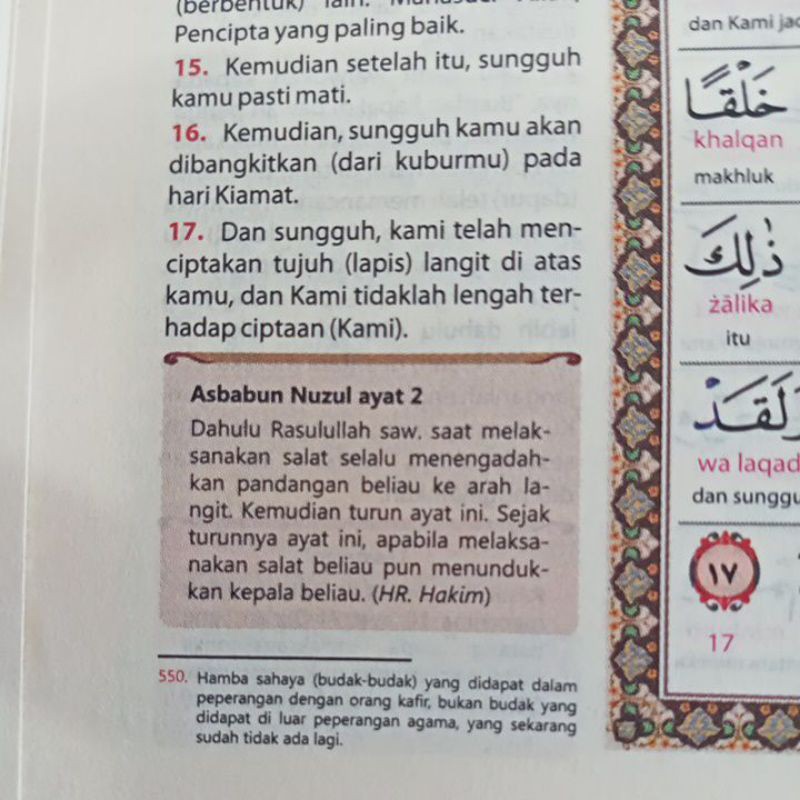 (berbentuk) lain.
Pencipta yang paling baik.
15. Kemudian setelah itu, sungguh
kamu pasti mati.
16. Kemudian, sungguh kamu akan
dibangkitkan (dari kuburmu) pada
hari Kiamat.
17. Dan sungguh, kami telah men-
ciptakan tujuh (lapis) langit di atas
kamu, dan Kami tidaklah lengah ter-
hadap ciptaan (Kami).
Asbabun Nuzul ayat 2
Dahulu Rasulullah saw. saat melak-
sanakan salat selalu menengadah-
kan pandangan beliau ke arah la-
ngit. Kemudian turun ayat ini. Sejak
turunnya ayat ini, apabila melaksa-
nakan salat beliau pun menunduk-
kan kepala beliau. (HR. Hakim)
550. Hamba sahaya (budak-budak) yang didapat dalam
peperangan dengan orang kafir, bukan budak yang
didapat di luar peperangan agama, yang sekarang
sudah tidak ada lagi.
dan Kami
خَلْقًا
khalqan
makhluk
ذٰلِكَ
żālika
itu
وَلَقَدْ
wa laqad
dan
١٧
17